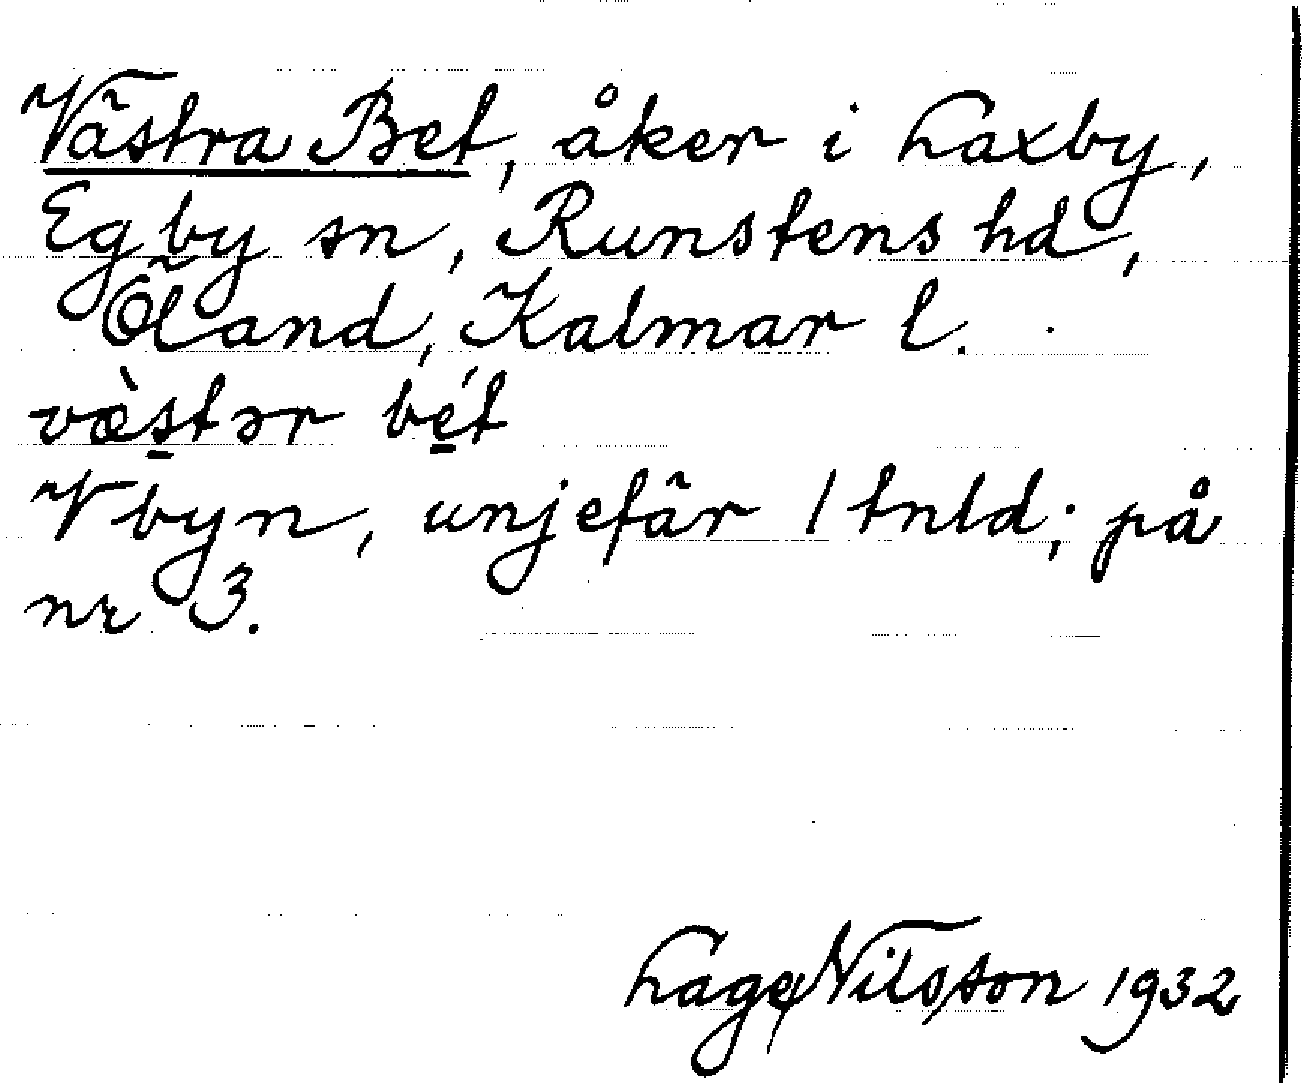 Västra Bet, åker i Laxby,
Egby sn, Runstens hd,
Öland, Kalmar l.
væ̀stər bét
V byn, unjefär 1 tnld; på
nr 3.
Lage Nilsson 1932